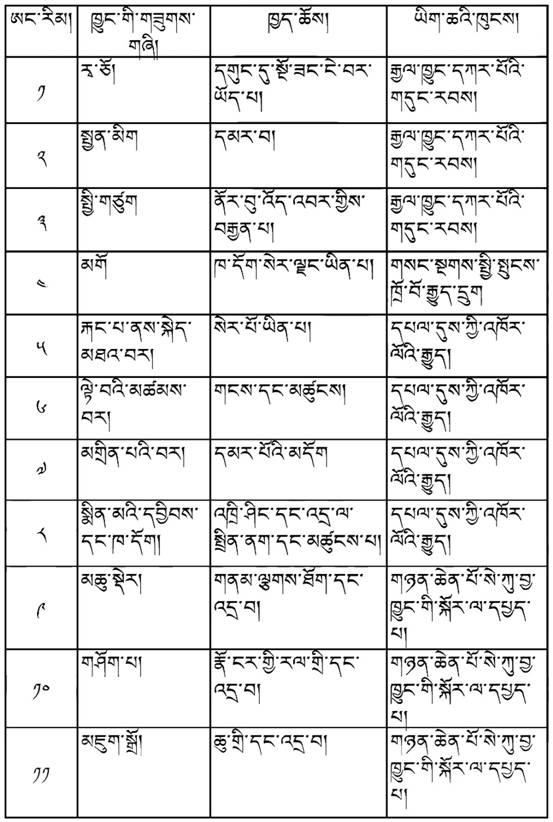 ཨང་རིམ། ཁྱུང་གི་གཟུགས་ ཁྱད་ཆོས། ཡིག་ཆའི་ཁུངས།
གཞི།
༡ རྭ་ཅོ། དགུང་དུ་སྔོ་ཟང་ངེ་བར་ རྒྱལ་ཁྱུང་དཀར་པོའི་
ཡོད་པ། གདུང་རབས།
༢ སྤྱན་མིག དམར་བ། རྒྱལ་ཁྱུང་དཀར་པོའི་
གདུང་རབས།
༣ སྤྱི་གཙུག ནོར་བུ་འོད་འབར་གྱིས་ རྒྱལ་ཁྱུང་དཀར་པོའི་
བརྒྱན་པ། གདུང་རབས།
༤ མགོ ཁ་དོག་སེར་ལྗང་ཡིན་པ། གསང་སྔགས་སྤྱི་སྤུངས་
ཁྲོ་བོ་རྒྱུད་དྲུག
༥ རྐང་པ་ནས་སྐེད་ སེར་པོ་ཡིན་པ། དཔལ་དུས་ཀྱི་འཁོར་
མཐའ་བར། ལོའི་རྒྱུད།
༦ ལྟེ་བའི་མཚམས་ གངས་དང་མཚུངས། དཔལ་དུས་ཀྱི་འཁོར་
བར། ལོའི་རྒྱུད།
༧ མགྲིན་པའི་བར། དམར་པོའི་མདོག དཔལ་དུས་ཀྱི་འཁོར་
ལོའི་རྒྱུད།
༨ སྨིན་མའི་དབྱིབས་ འཁྲི་ཤིང་དང་འདྲ་ལ་ དཔལ་དུས་ཀྱི་འཁོར་
དང་ཁ་དོག། སྤྲིན་ནག་དང་མཚུངས་པ། ལོའི་རྒྱུད།
༩ མཆུ་སྡེར། གནམ་ལྕགས་ཐོག་དང་ གཉན་ཆེན་པོ་སེ་ཀུ་བྱ་
འདྲ་བ། ཁྱུང་གི་སྐོར་ལ་དཔྱད་
པ།
༡༠ གཤོག་པ། རྣོ་ངར་གྱི་རལ་གྲི་དང་ གཉན་ཆེན་པོ་སེ་ཀུ་བྱ་
འདྲ་བ། ཁྱུང་གི་སྐོར་ལ་དཔྱད་
པ།
༡༡ མཇུག་སྒྲོ། ཆུ་གྲི་དང་འདྲ་བ། གཉན་ཆེན་པོ་སེ་ཀུ་བྱ་
ཁྱུང་གི་སྐོར་ལ་དཔྱད་
པ།